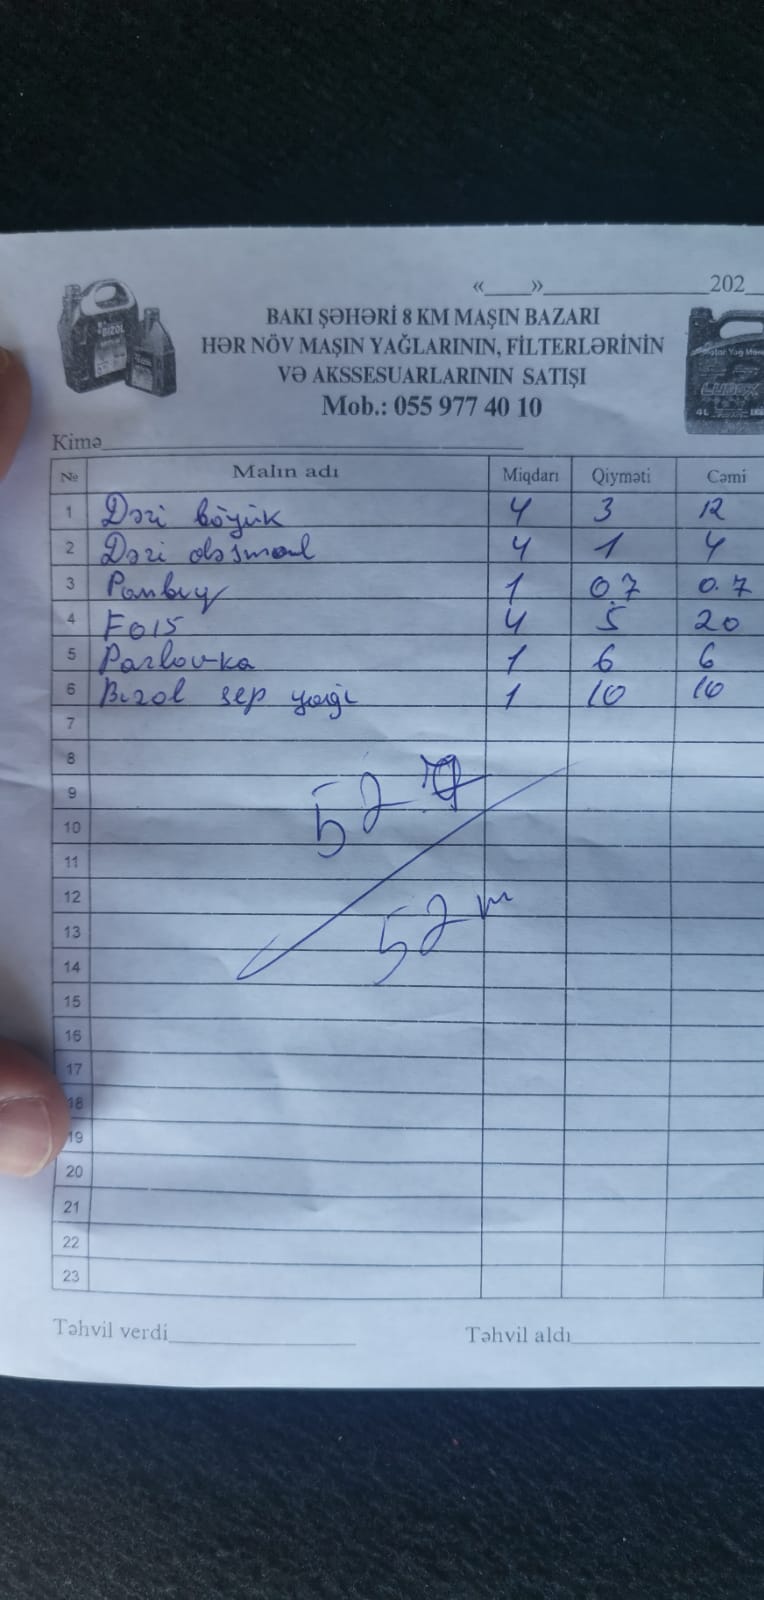 «____»________________202__
BAKI ŞƏHƏRİ 8 KM MAŞIN BAZARI
HƏR NÖV MAŞIN YAĞLARININ, FİLTERLƏRİNİN
VƏ AKSSESUARLARININ SATIŞI
Mob.: 055 977 40 10
BIZOL
Motor Yağ
LUBEX
4L
Kimə________________
№ Malın adı Miqdarı Qiyməti Cəmi
1 Dəri böyük 4 3 12
2 Dəri dəsmal 4 1 4
3 Pambuy 1 0.7 0.7
4 FO15 4 5 20
5 Parlovka 1 6 6
6 Bizol sep yaği 1 10 10
7
8
9 52
10
11
12
13 52 m
14
15
16
17
18
19
20
21
22
23
Təhvil verdi________________ Təhvil aldı________________